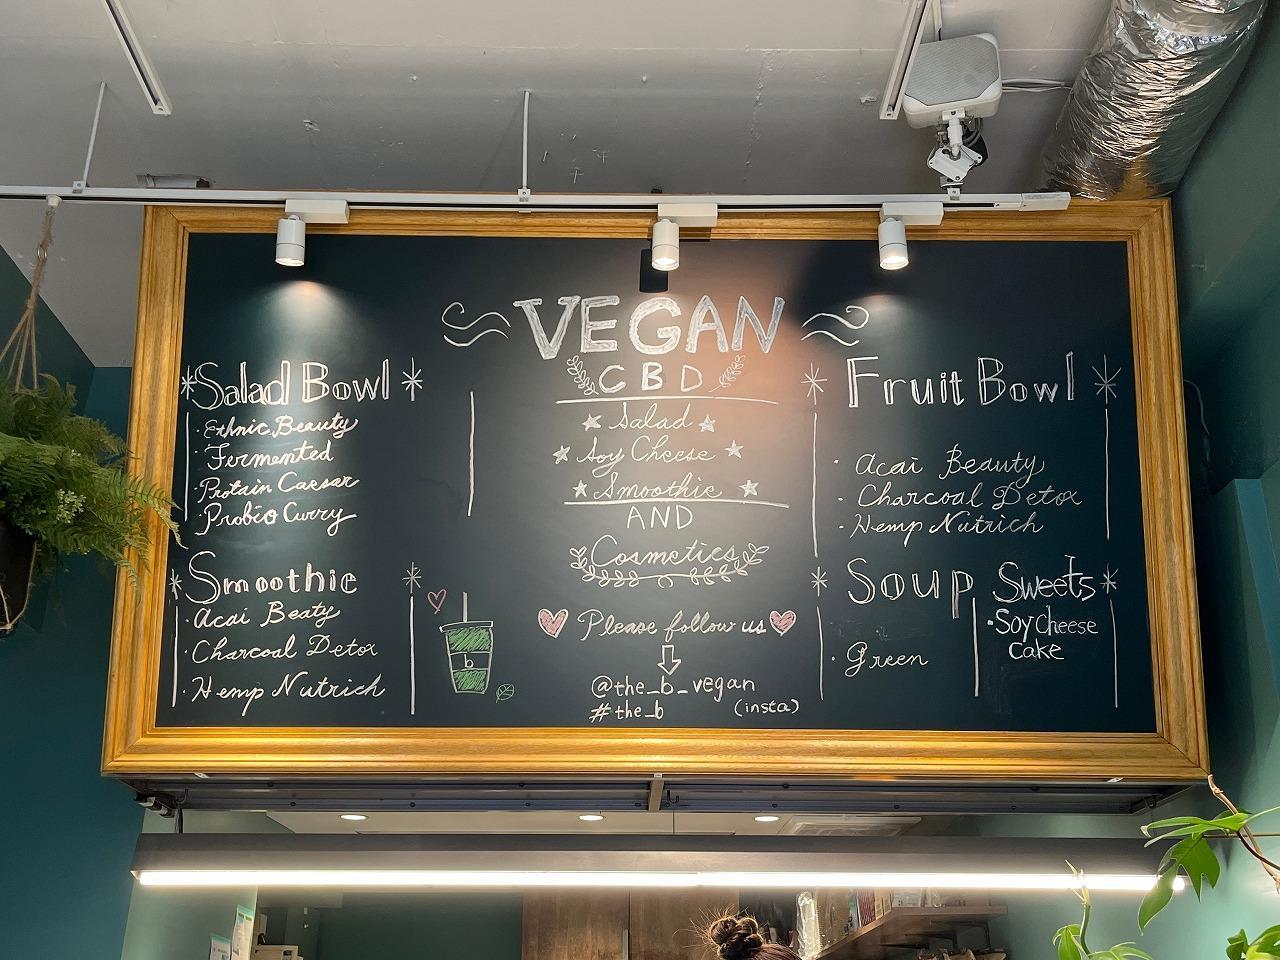 VEGAN
CBD
Salad
Soy Cheese
Smoothie
AND
Cosmetics
Please follow us
@the_b_vegan
#the_b (insta)
Salad Bowl
· Ethnic Beauty
· Fermented
· Protain Caesar
· Probio Curry
Smoothie
· Acai Beaty
· Charcoal Detox
· Hemp Nutrich
b
Fruit Bowl
· Acai Beauty
· Charcoal Detox
· Hemp Nutrich
Soup
· Green
Sweets
· Soy Cheese
Cake